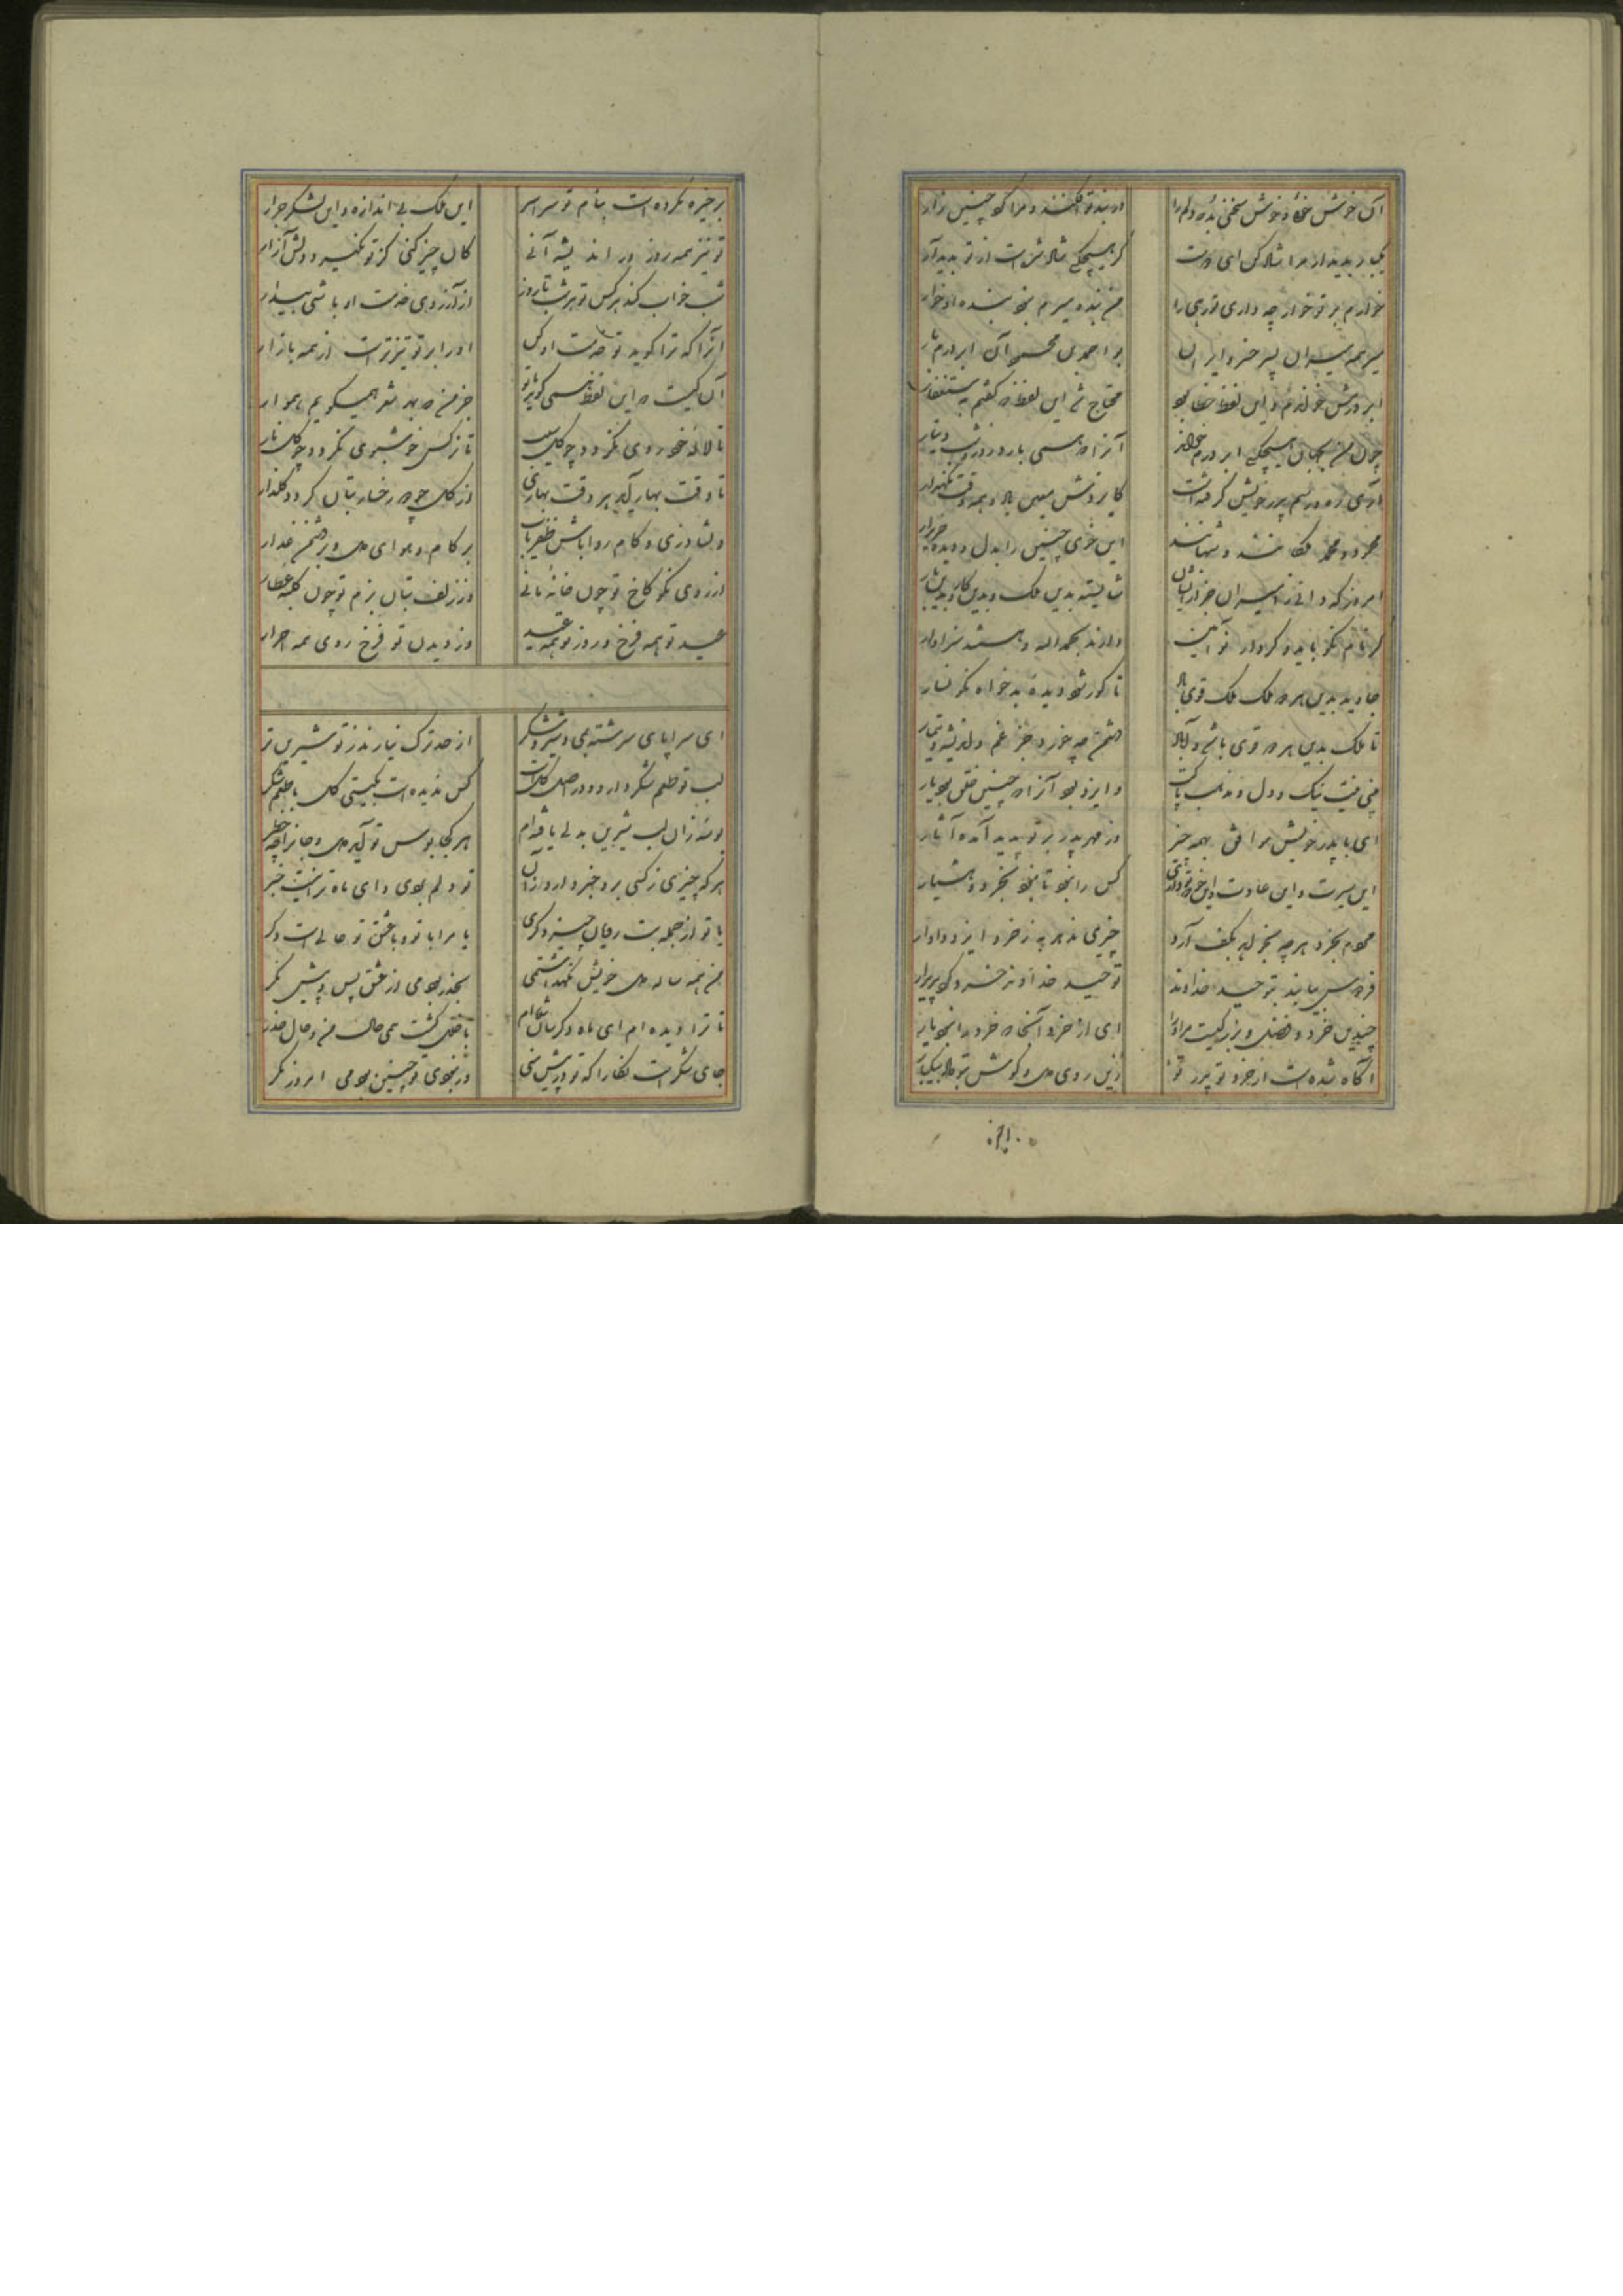 آن خوش خو و خوش سخنی بدره دلم را
در بند تو افکند و مرا کو چنین زار
یکبار بدیدار مرا شاد کن ای دوست
گر هیچکسی شاد شدست از تو بدیدار
خوارم بر تو خوار چه داری تو رهی را
من بنده میرم نبود بنده او خوار
میر همه میران پسر خسرو ایران
بو احمد بن محمود آن ابر درم بار
ابر درمش خواندم و این لفظ خطا بود
محتاج شد این لفظ که گفتم به ستغفار
چون من بجهان هیچکسی ابر درم خواند
آنرا که همی بارد روز و شب دینار
محمود و محمد ملکانند و شهانند
این خوی چنین را بدل و دیده خریدار
امروز که دانی ز امیران جز ازیشان
شایسته بدین ملک و بدین کار و بدین بار
گر نام نکو باید و کردار نو آیین
دارند بحمد الله و هستند سزاوار
جاوید بدین هر دو ملک ملک قوی باد
تا کور شود دیده بدخواه نگونسار
تا ملک بدین هر دو قوی باشد و آباد
دشمن چه خورد جز غم و اندیشه و تیمار
نی نیت نیک و دل و مذهب پاکست
و ایزد بود آنرا که چنین خلق بود یار
ای با پدر خویش موافق بهمه چیز
وز مهر پدر بر تو پدید آمده آثار
این سیرت و این عادت و این خو که تو داری
کس را نبود تا نبود بخرد و هشیار
مردم بخرد هر چه بخواهد بکف آرد
چیزی ندهد به ز خرد ایزد دادار
توحید خداوند خرد گوید بسیار
چندین خرد و فضل و بزرگیست مر او را
ای از خرد آنجا که خرد را نبود یار
آگاه شده است از خرد تو پدر تو
زین روی دل و گوش بتو داد بیکبار
بر خیره نکرده است بنام تو سراسر
این ملک بی اندازه و این لشکر جرار
تو نیز همه روز در اندیشه آنی
کان چیز کنی کز تو نگیرد دلش آزار
شب خواب کند هر کس تو هر شب تا روز
از آرزوی خدمت او باشی بیدار
آنرا که ترا گوید تو خدمت او کن
او را بر تو تیزترست از همه بازار
آن کیست که این لفظ همی گوید با تو
جز من که بدین شعر همیگویم هموار
تا لاله خودروی نگردد چو گل سیب
تا نرگس خوشبوی نگردد چو گل نار
تا وقت بهار آید هر وقت بهاری
از گل چو دو رخسار بتان گردد گلزار
دلشاد زی و کام روا باش و ظفریاب
بر کام و هوای دل و بر دشمن غدار
از روی نکو کاخ تو چون خانه مانی
وز زلف بتان بزم تو چون کلبه عطار
عید تو همه فرخ و روز تو همه عید
وز دیدن تو فرخ روی همه احرار
ای سراپای سرشته بمی و شیر و شکر
از حد ترک نیارند ز تو شیرین تر
لب تو طعم شکر دارد و در اصل گلست
کس ندیده است بگیتی گل با طعم شکر
بوسه زان لب شیرین بدلی یافته ام
هر کجا بوس تو آید دل و جانرا چه خطر
هر که چیزی ز کسی برد خبر دارد از آن
تو دلم بردی و ای ماه ترا نیست خبر
یا تو از جمله بت رویان چیز دگری
یا مرا با تو و با عشق تو حالی است دگر
من همه ساله دل خویش نگهداشتمی
بحذر بودمی از عشق پس و پیش نگر
تا ترا دیده ام ای ماه دگر سان شده ام
جای شکر است نگارا که تو در پیش منی
ور نبودی تو چنین بودمی امروز مگر